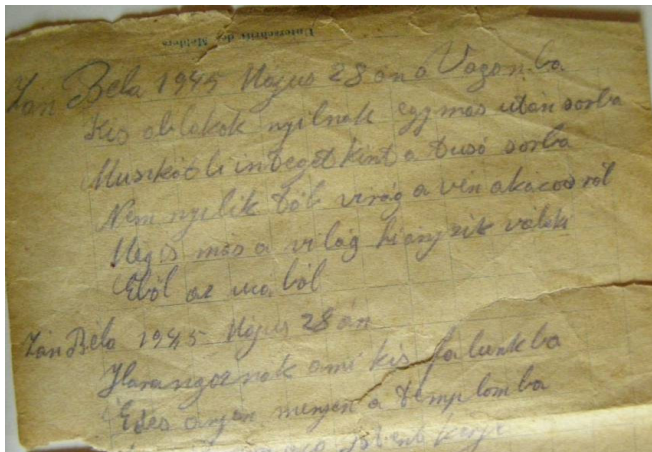 Unterschrift des Melders
Zán Béla 1945 Május 28 án a Vagonba
Kis ablakok nyilnak egymás után sorba
Muskátli integet kint a tusó sorba
Nem nyilik több virág a vén akácosról
Mégis más a világ hiányzik valaki
Eböl az ucából
Zán Béla 1945 Május 28 án
Harangoznak ami kis falunkba
Édes anyán menyen a templomba